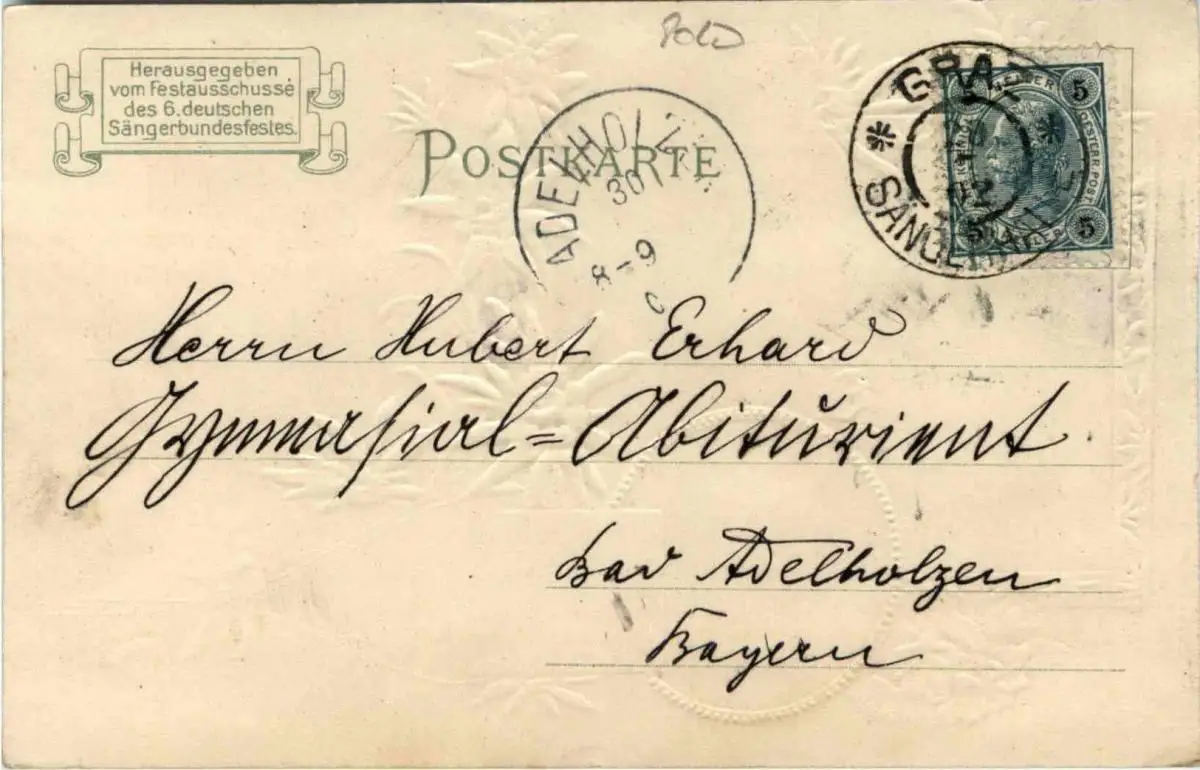 Herausgegeben
vom Festausschusse
des 6. deutschen
Sängerbundesfestes.
POSTKARTE
ADELHOLZ
30
8-9
GRAZ
02
SÄNGERHALLE
5
5
5
OESTERR. POST
Herrn Hubert Erhard
Gymnasial=Abiturient
Bad Adelholzen
Bayern